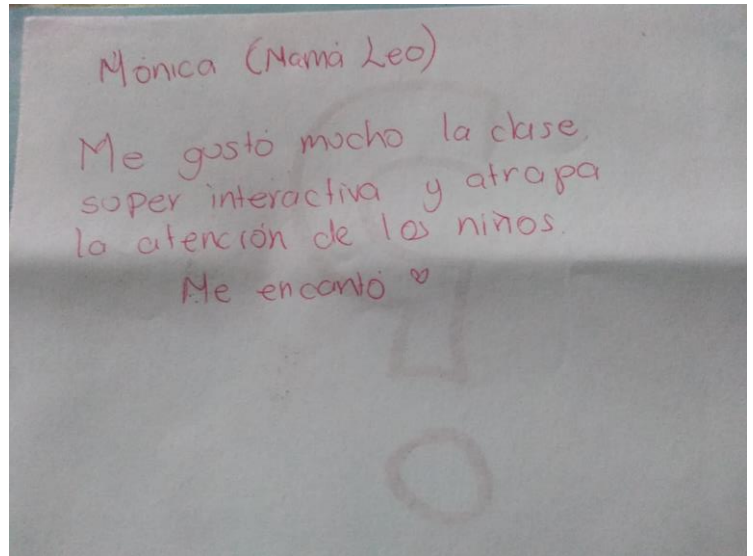 Mónica (Mamá Leo)
Me gustó mucho la clase,
super interactiva y atrapa
la atención de los niños.
Me encantó ♡